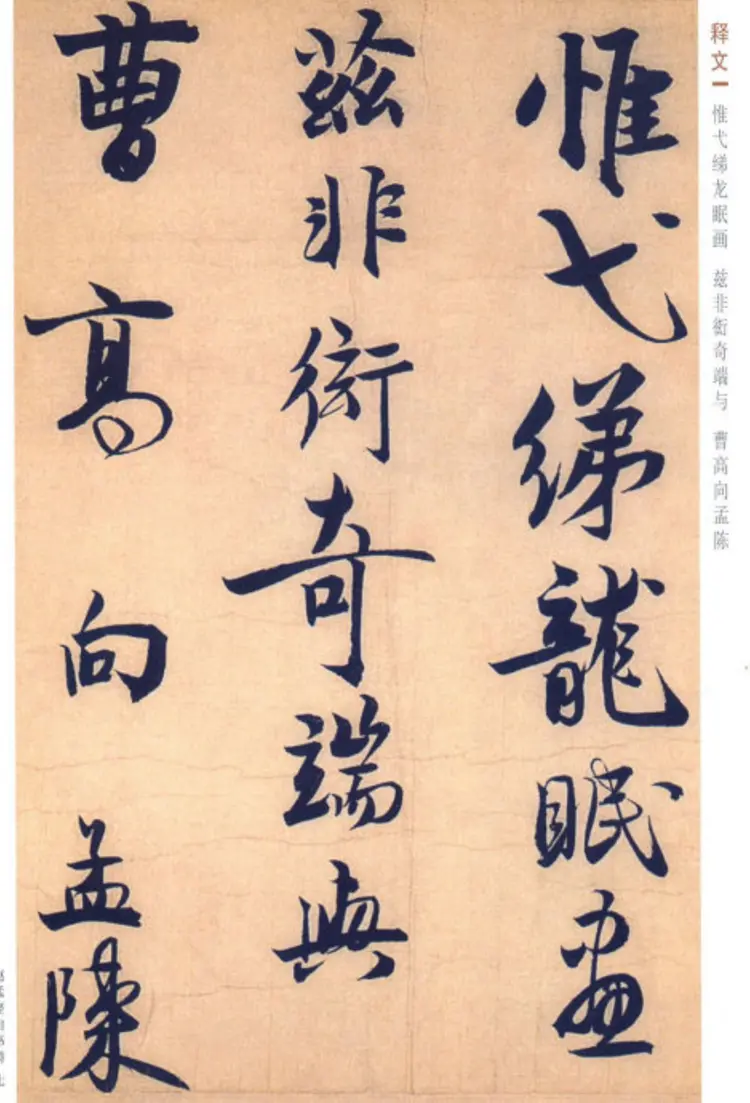 惟弋綈龍眠畫
茲非衒奇端與
曹高向孟陳
释文一 惟弋绨龙眠画 兹非衒奇端与 曹高向孟陈